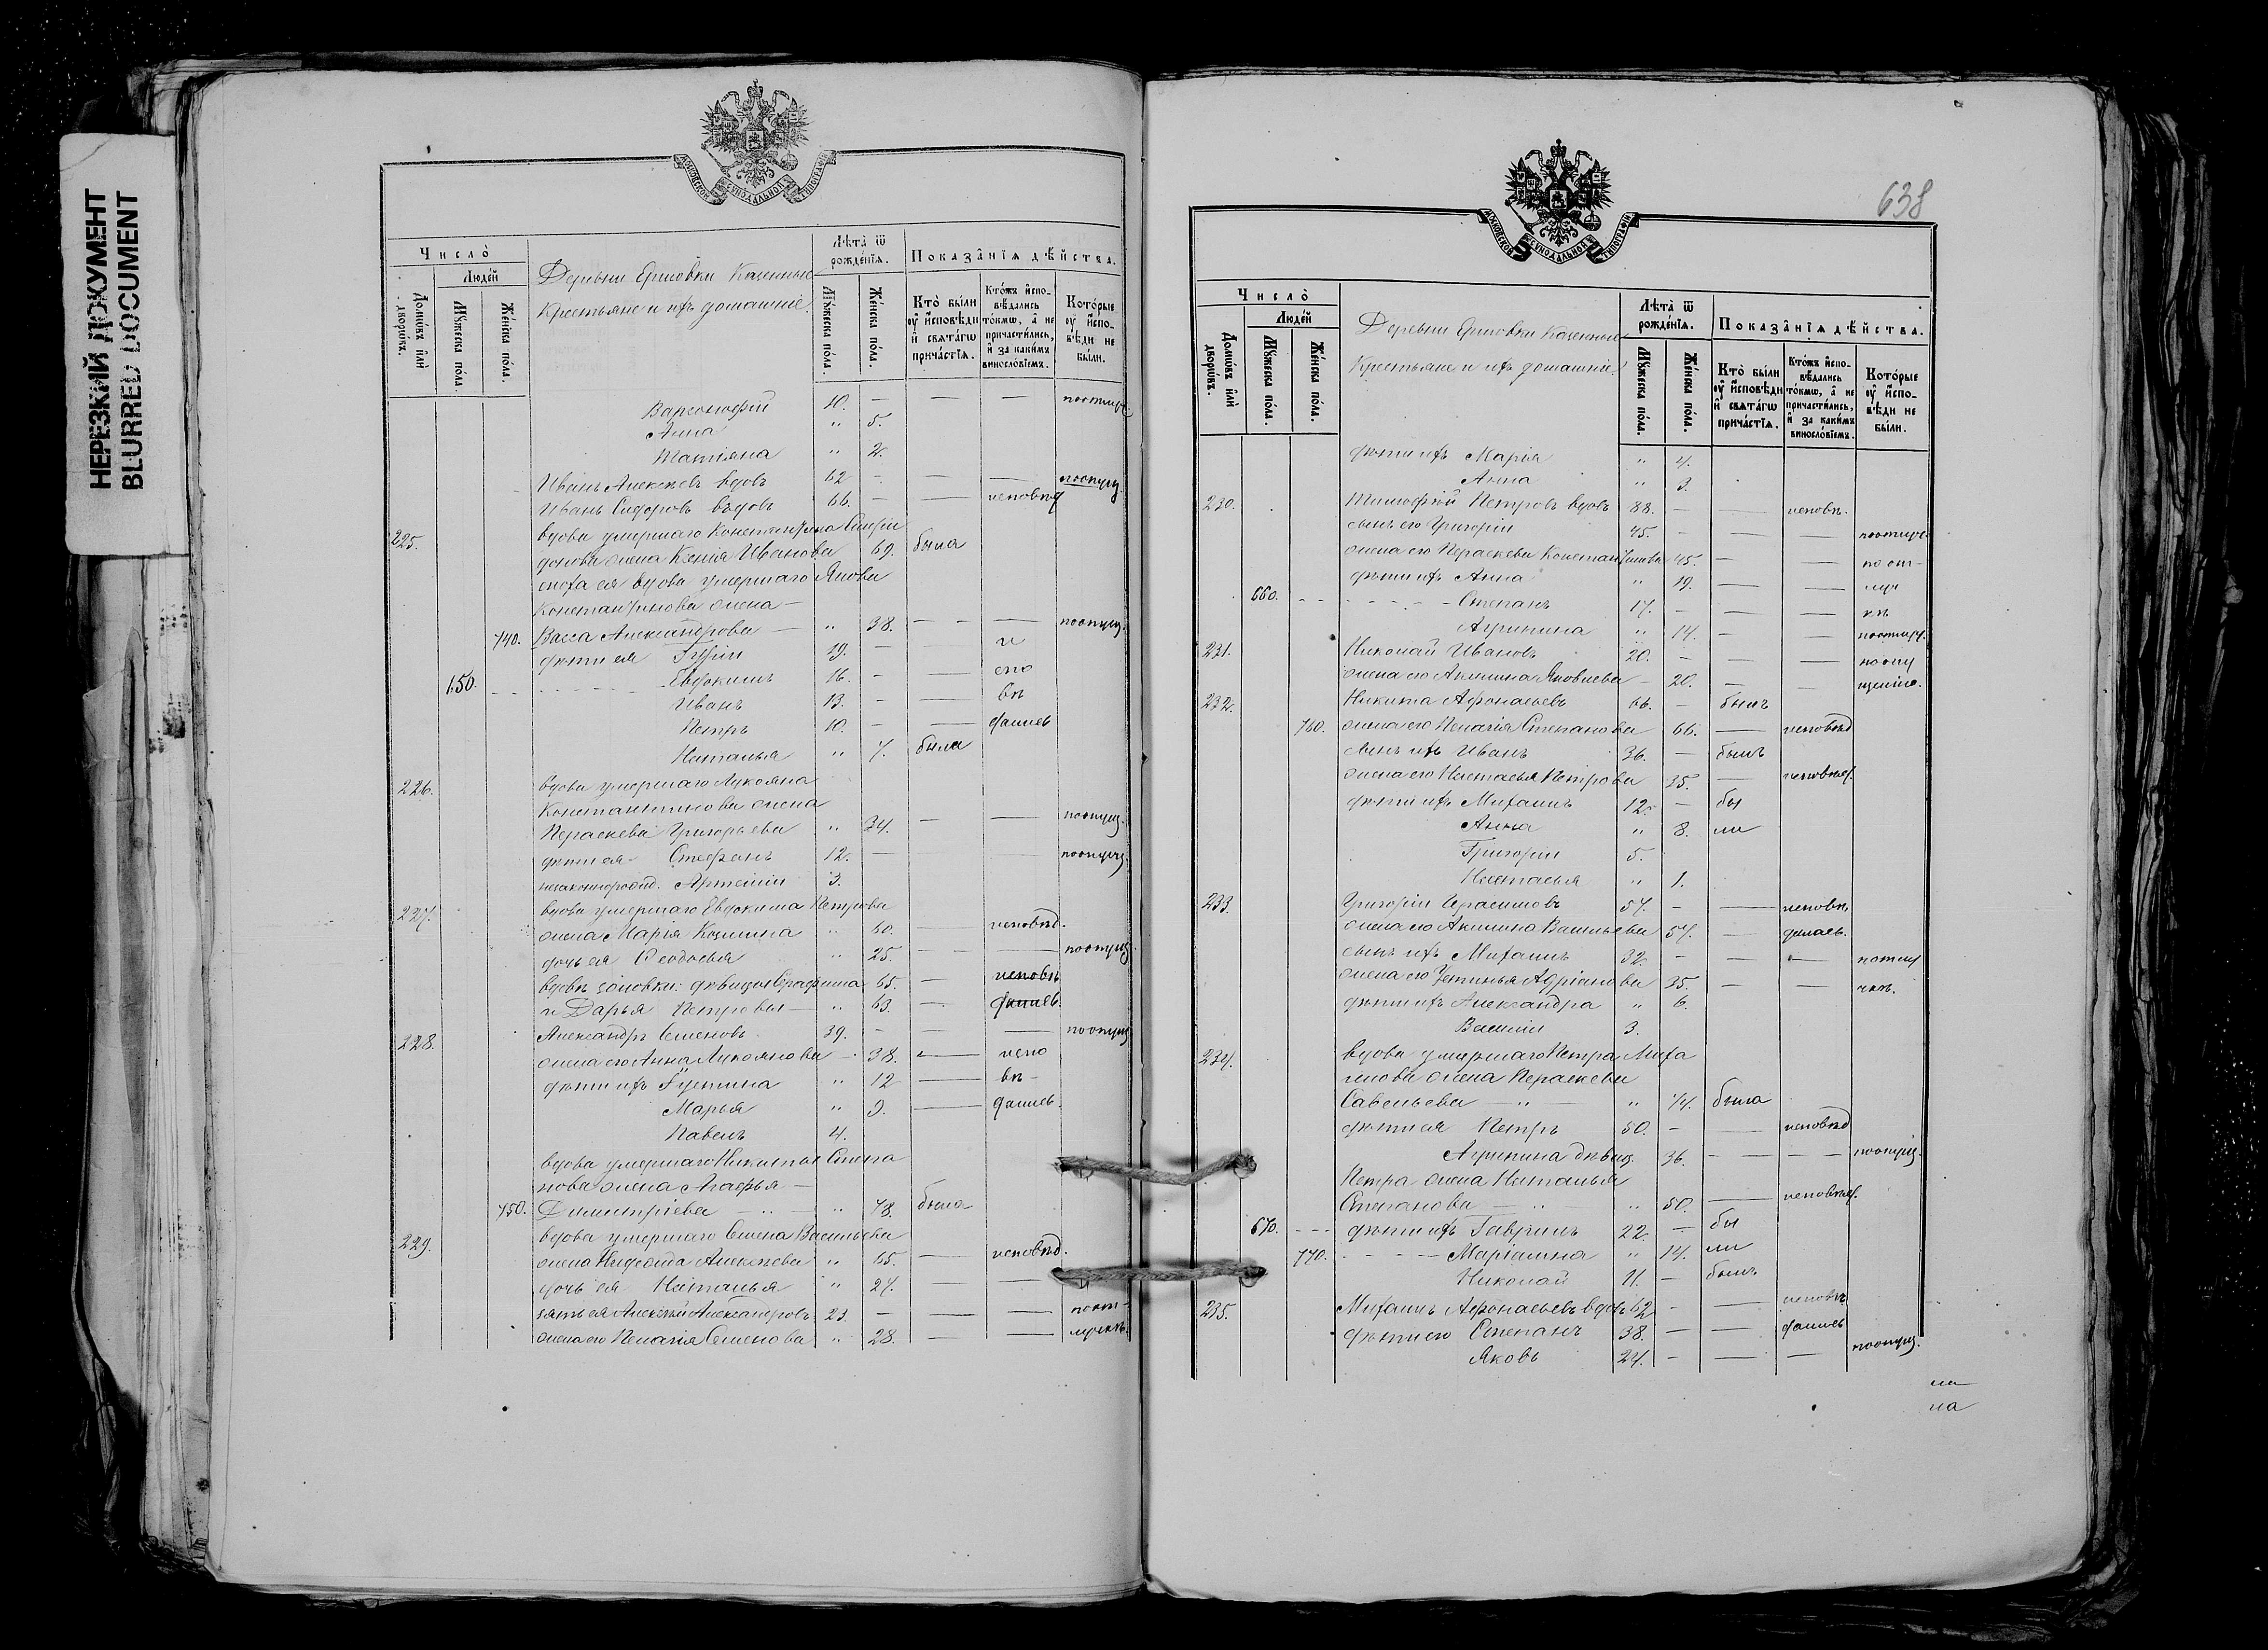 НЕРЕЗКИЙ ДОКУМЕНТ
BLURRED DOCUMENT
МОСКОВСКОЙ СѴНОДАЛЬНОЙ ТИПОГРАФІИ
Число̀
Домѡ́въ и҆лѝ дворѡ́въ.
Люде́й
Мꙋ́жеска по́ла.
Же́нска по́ла.
Деревни Ершовки Казенные
Крестьяне и ихъ домашніе.
Лѣ́та ѿ рожде́нїѧ.
Мꙋ́жеска по́ла.
Же́нска по́ла.
Показа̑нїѧ дѣ́йства.
Кто̀ бы́ли ᲂу҆ и҆́сповѣди и҆ свѧта́гѡ прича́стїѧ.
Кто́жъ и҆спо-вѣ́дались то́кмѡ, а҆ не причасти́лись, и҆ за каки́мъ винословїемъ.
Кото́рые ᲂу҆ и҆спо-вѣ́ди не бы́ли.
Варсонофій 10. — — — поопуще
Анна " 5.
Татіана " 2.
Иванъ Алексѣевъ вдовъ 62 - — — поопущ.
Иванъ Сидоровъ вдовъ 66. — — исповѣд
225. вдова умершаго Константина Спири
донова жена Ксенія Иванова 69. была
сноха ея вдова умершаго Якова
Константинова жена —
740. Васса Александрова — " 38. — — — поопущ.
дѣти ея Гурій 19. — — и
650. Евдокимъ 16. - — спо
Иванъ 13. - — вѣ
Петръ 10. - — дались
Наталья " 7. была
226. вдова умершаго Лукояна
Константинова жена
Параскева Григорьева " 34. — — поопущ.
дѣти ея Стефанъ 12. — — поопущ.
незаконнорожд. Артемій 3.
227. вдова умершаго Евдокима Петрова
жена Марія Козмина " 60. — исповѣд.
дочь ея Ѳеодосья " 25. — — поопущ
вдовѣ золовки: дѣвицы Серафима 65. — исповѣ
и Дарья Петровы — " 63. — дались.
228. Александръ Семеновъ 39. - — — поопущ
жена его Анна Лукоянова — 38. — испо
дѣти ихъ Іустина " 12 — вѣ-
Марья " 9. — дались.
Павелъ 4.
вдова умершаго Никиты Степа
нова жена Агафья —
750. Димитріева — " — " 78. была
229. вдова умершаго Семена Васильева
жена Алексѣева " 65. — исповѣд.
дочь ея Наталья " 24. — —
зять ея Алексѣй Александровъ 23 — — — поот-
жена его Пелагія Семенова " 28. — — лучкѣ.
638
МОСКОВСКОЙ СѴНОДАЛЬНОЙ ТИПОГРАФІИ
Число̀
Домѡ́въ и҆лѝ дворѡ́въ.
Люде́й
Мꙋ́жеска по́ла.
Же́нска по́ла.
Деревни Ершовки Казенные
Крестьяне и ихъ домашніе.
Лѣ́та ѿ рожде́нїѧ.
Мꙋ́жеска по́ла.
Же́нска по́ла.
Показа̑нїѧ дѣ́йства.
Кто̀ бы́ли ᲂу҆ и҆́сповѣди и҆ свѧта́гѡ прича́стїѧ.
Кто́жъ и҆спо-вѣ́дались то́кмѡ, а҆ не причасти́лись, и҆ за каки́мъ винословїемъ.
Кото́рые ᲂу҆ и҆спо-вѣ́ди не бы́ли.
дѣти ихъ Марія " 4.
Анна " 3.
230. Тимофей Петровъ вдовъ 88. — — исповѣ.
сынъ его Григорій 45. - — —
жена его Параскева Константинова 45. — — по от-
дѣти ихъ Анна " 19. — — луч
660. Степанъ 17. - — — кѣ
Агрипина " 14. - — —
231. Николай Ивановъ 20. - — — поопу
жена его Акилина Яковлева — 20. — — щенію.
232. Никита Афонасьевъ 66. - былъ
760. жена его Пелагія Степанова 66. — исповѣд
сынъ ихъ Иванъ 36. — былъ
жена его Настасья Петрова 35. — исповѣд.
дѣти ихъ Михаилъ 12. — бы
Анна " 8. ли
Григорій 5.
Настасья " 1.
233. Григорій Герасимовъ 57. - — исповѣ
жена его Акилина Васильева 57. — дались.
сынъ ихъ Михаилъ 32. - — — поотлу
жена его Устинья Адріанова 35. — — чкѣ.
дѣти ихъ Александра " 6.
Василій 3.
234. вдова умершаго Петра Миха
илова жена Параскева
Савельева — " — " 74. была
дѣти ея Петръ 50. - — исповѣд
Агрипина дѣвиц. 36. — — — поопущ.
Петра жена Наталья
Степанова — " — " 50. — исповѣд.
670. дѣти ихъ Гавриилъ 22. — бы
770. Маріамна " 14. ли
Николай 11. — былъ
235. Михаилъ Афонасьевъ вдовъ 62 - — исповѣ
дѣти его Степанъ 38. — — дались
Яковъ 24. — — — поопущ.
на